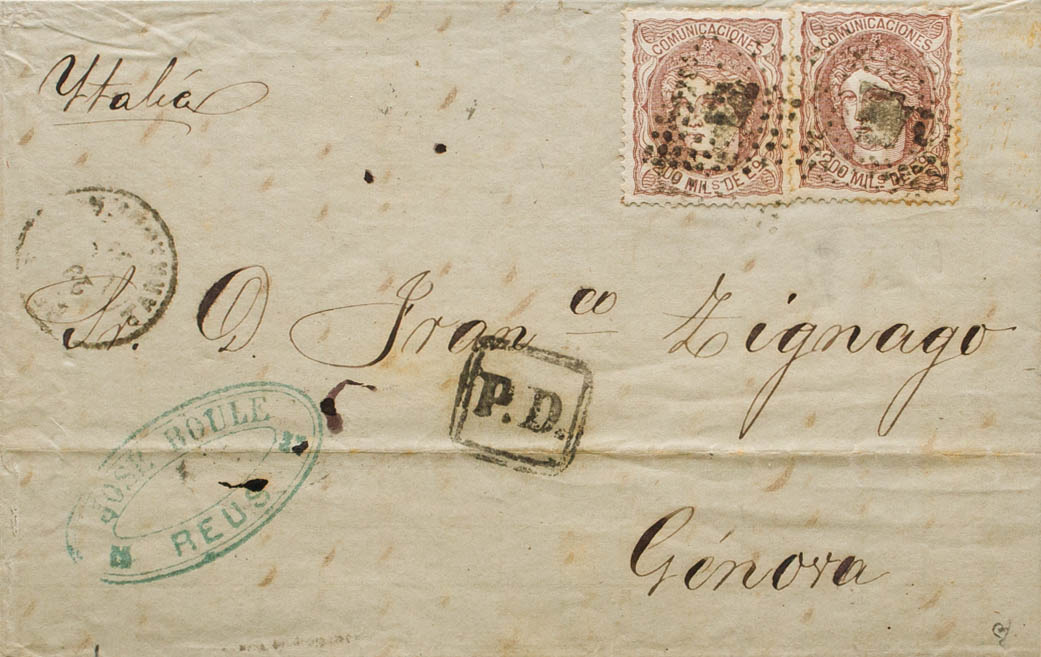 COMUNICACIONES
200 MILS DE
COMUNICACIONES
200 MILS DE
Ytalia
Sr. D. Franco Zignago
P.D.
JOSE BOULE
REUS
Génova